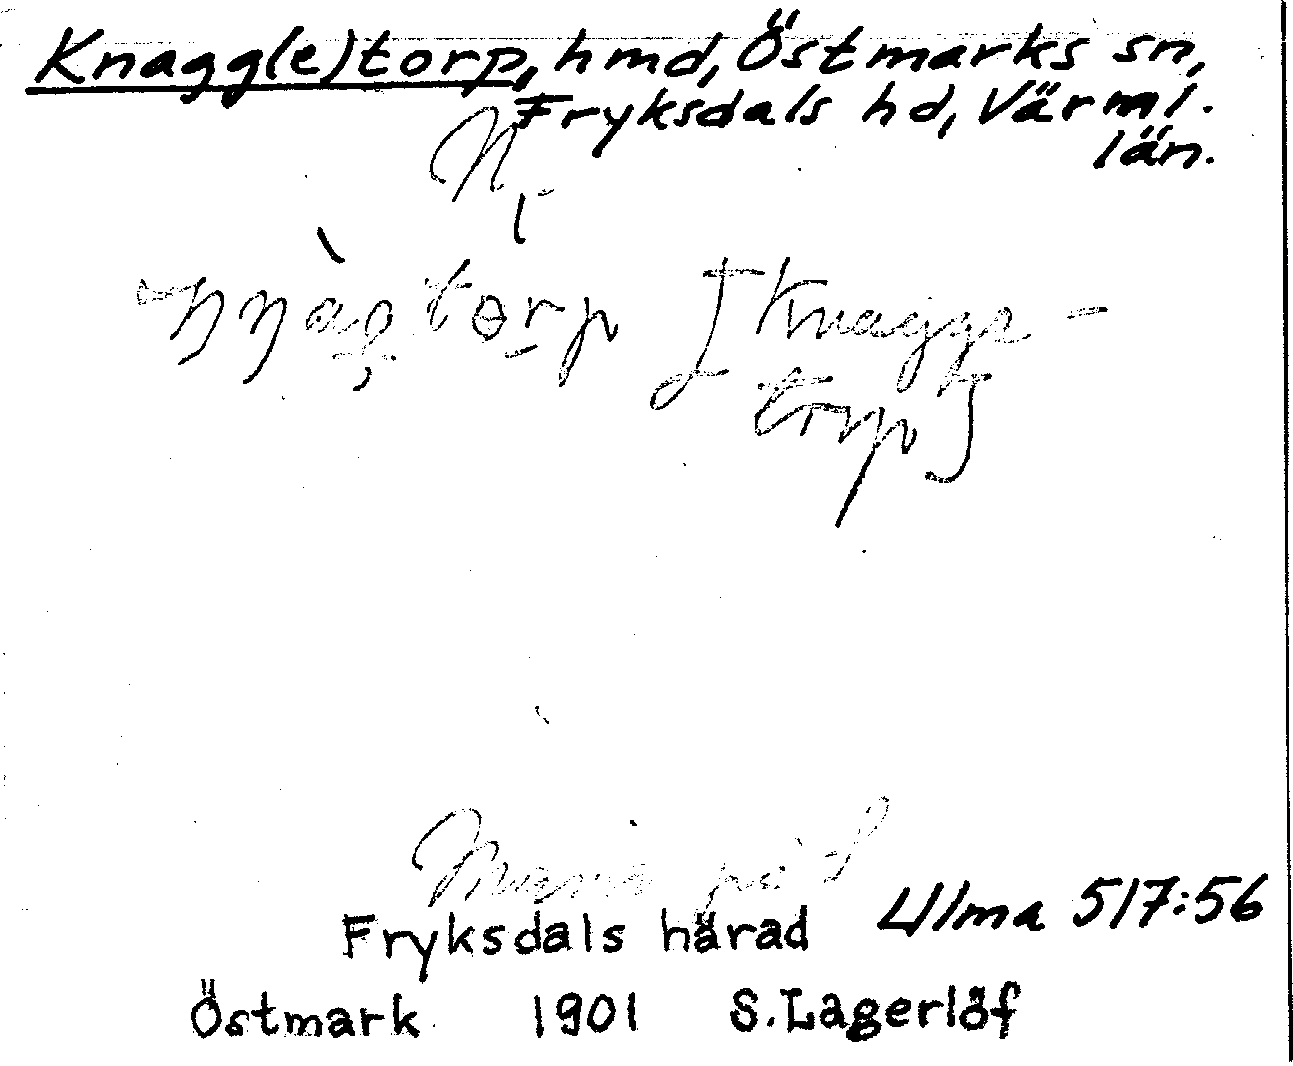 Knagg(e)torp, hmd, Östmarks sn,
Fryksdals hd, Värml.
län.
N
torp [Knagge-
torp]
på
Ulma 517:56
Fryksdals härad
Östmark 1901 S. Lagerlöf